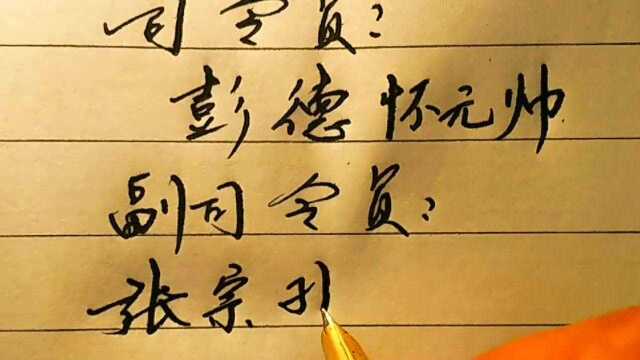 司令员:
彭德怀元帅
副司令员:
张宗